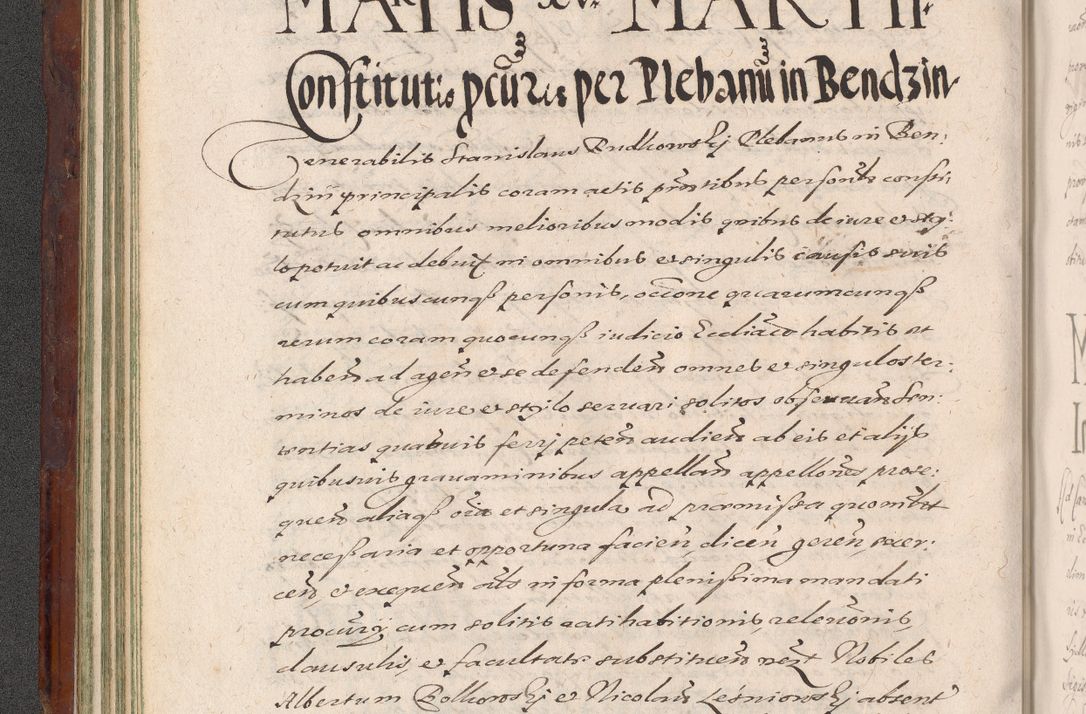 MARTIS XVI. MARTII.
Constitutio p̃cũris per Plebanũ in Bendzin.
Venerabilis Stanislaus Rudkowskj Plebanus in Ben:
dzin̄ principalis coram actis p̃ntibus person̄lr consti,
tutus omnibus melioribus modis quibus de iure et sty:
lo potuit ac debuit in omnibus et singulis causis suis
cum quibuscunqꝫ personis, occõne quarumcunqꝫ
rerum coram quocunqꝫ iudicio Ecclīaco habitis et
haben̄ ad agen̄ et se defenden̄ omnes et singulos ter:
minos de iure et stylo seruari solitos obseruan̄ Sen:
tentias quasuis ferrj peten̄ audien̄ ab eis et alijs
quibusuis grauaminibus appellan̄ appellones prose:
quen̄ aliaqꝫ oīa et singula ad præmissa quomlt
necessaria et opportuna facien̄, dicen̄ geren̄, exer:
cen̄, et exequen̄ als̄ in forma plenissima mandati
procūrij cum solitis ratihabitionis, relevōnis,
clausulis, et facultate substituen̄ Nobiles
Albertum Bolkowskj et Nicolaū Leśniowskj absent